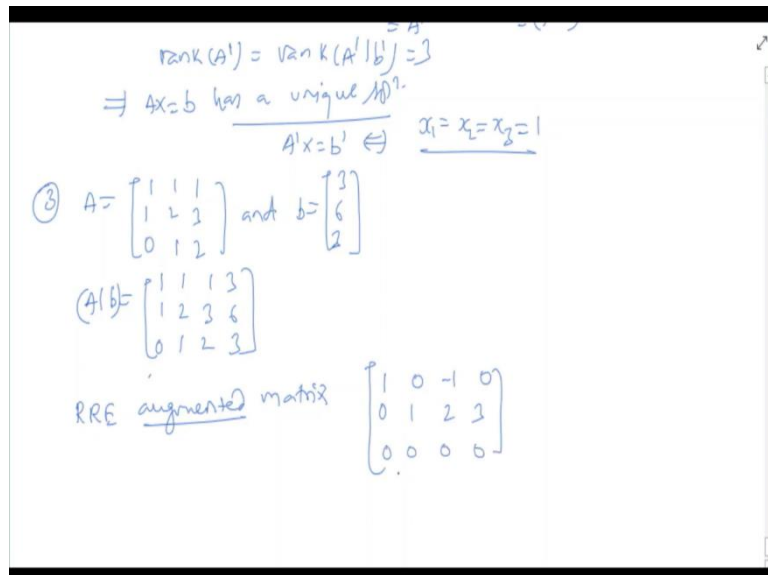 = A'
rank(A') = rank(A'|b') = 3
⇒ Ax=b has a unique solⁿ.
A'x=b' ⇔ x₁ = x₂ = x₃ = 1
③ A= [1 1 1; 1 2 3; 0 1 2] and b= [3; 6; 3]
(A|b)= [1 1 1 3; 1 2 3 6; 0 1 2 3]
RRE augmented matrix [1 0 -1 0; 0 1 2 3; 0 0 0 0]